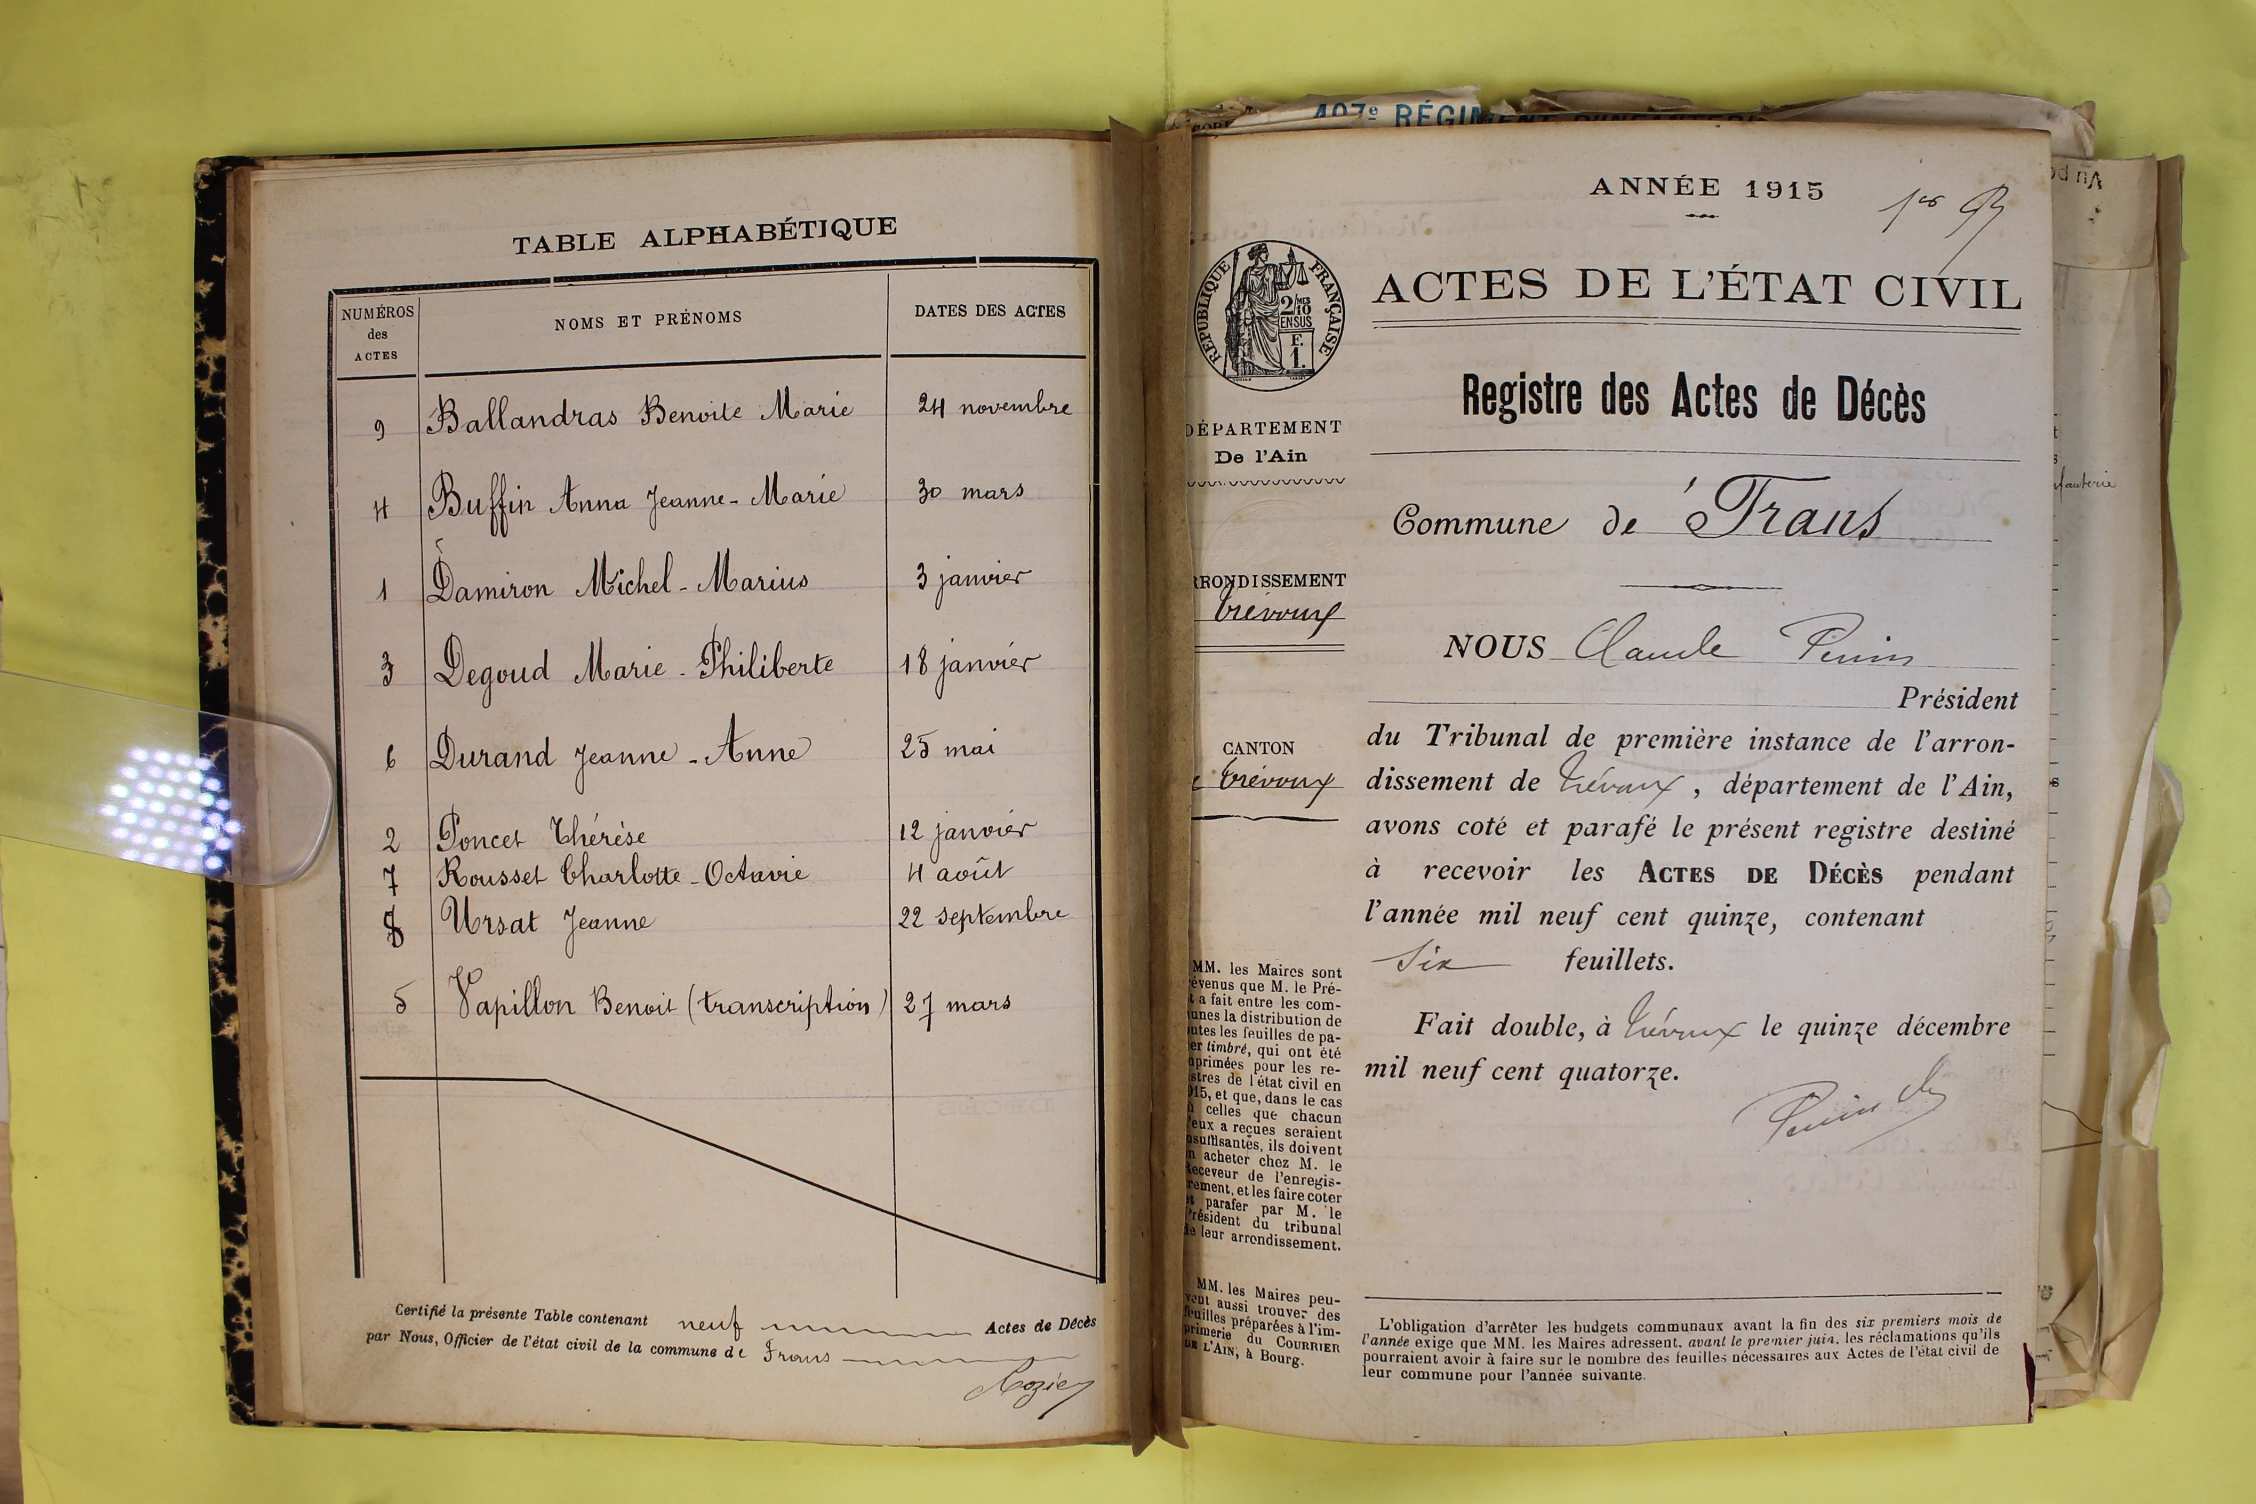 TABLE ALPHABÉTIQUE
NUMÉROS des ACTES
NOMS ET PRÉNOMS
DATES DES ACTES
9 Ballandras Benoite Marie 24 novembre
4 Buffin Anna Jeanne-Marie 30 mars
1 Damiron Michel-Marius 3 janvier
3 Degoud Marie-Philiberte 18 janvier
6 Durand Jeanne-Anne 25 mai
2 Poncet Thérèse 12 janvier
7 Rousset Charlotte-Octavie 4 août
8 Ursat Jeanne 22 septembre
5 Vapillon Benoit (transcription) 27 mars
Certifié la présente Table contenant neuf Actes de Décès
par Nous, Officier de l'état civil de la commune de Frans
407e RÉGIMENT
ANNÉE 1915
RÉPUBLIQUE FRANÇAISE
2/10 MES
EN SUS
F.
1.
ACTES DE L'ÉTAT CIVIL
Registre des Actes de Décès
DÉPARTEMENT
De l'Ain
Commune de Frans
RRONDISSEMENT
Trévoux
NOUS Claude
Président
CANTON
e Trévoux
du Tribunal de première instance de l'arron-
dissement de Trévoux, département de l'Ain,
avons coté et parafé le présent registre destiné
à recevoir les ACTES DE DÉCÈS pendant
l'année mil neuf cent quinze, contenant
six feuillets.
Fait double, à Trévoux le quinze décembre
mil neuf cent quatorze.
MM. les Maires sont
évenus que M. le Pré-
t a fait entre les com-
unes la distribution de
utes les feuilles de pa-
er timbré, qui ont été
primées pour les re-
stres de l'état civil en
915, et que, dans le cas
celles que chacun
eux a reçues seraient
suffisantes, ils doivent
n acheter chez M. le
Receveur de l'enregis-
rement, et les faire coter
et parafer par M. le
Président du tribunal
de leur arrondissement.
MM. les Maires peu-
vent aussi trouver des
feuilles préparées à l'im-
primerie du COURRIER
DE L'AIN, à Bourg.
L'obligation d'arrêter les budgets communaux avant la fin des six premiers mois de
l'année exige que MM. les Maires adressent, avant le premier juin, les réclamations qu'ils
pourraient avoir à faire sur le nombre des feuilles nécessaires aux Actes de l'état civil de
leur commune pour l'année suivante.